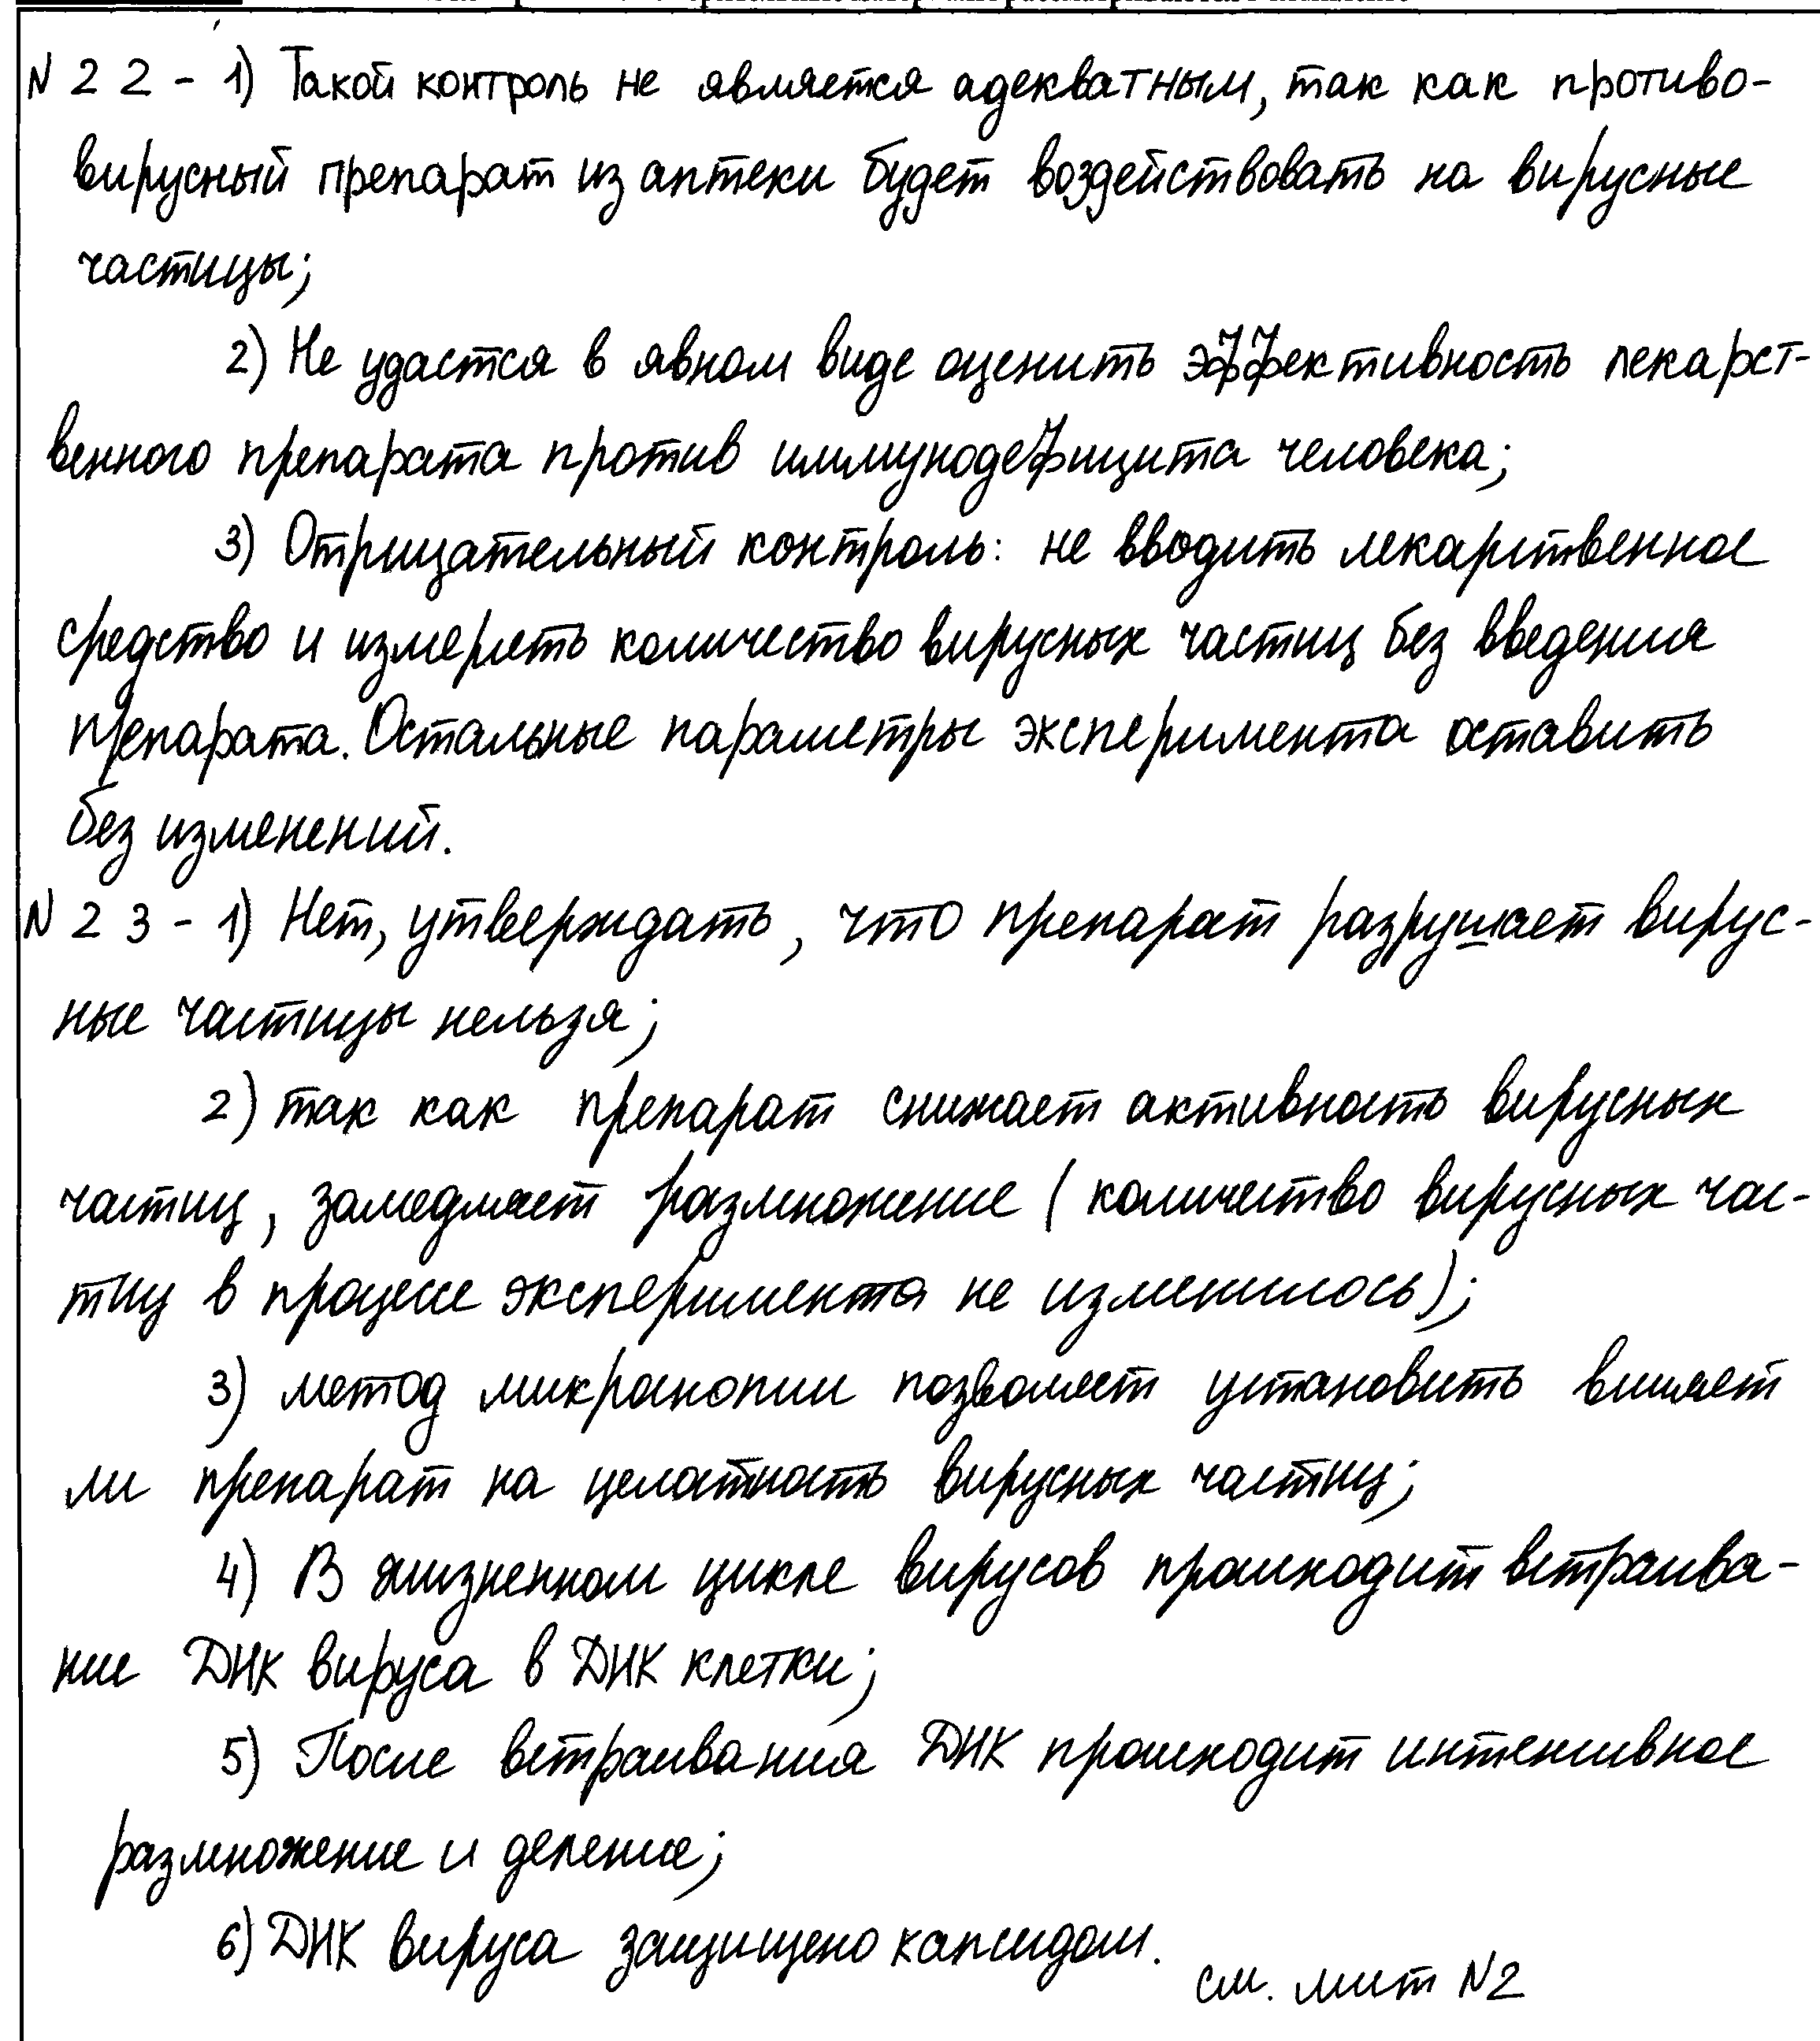 N 22 - 1) Такой контроль не является адекватным, так как противо-
вирусный препарат из аптеки будет воздействовать на вирусные
частицы;
2) Не удастся в явном виде оценить эффективность лекарст-
венного препарата против иммунодефицита человека;
3) Отрицательный контроль: не вводить лекарственное
средство и измерять количество вирусных частиц без введения
препарата. Остальные параметры эксперимента оставить
без изменений.
N 23 - 1) Нет, утверждать, что препарат разрушает вирус-
ные частицы нельзя;
2) так как препарат снижает активность вирусных
частиц, замедляет размножение (количество вирусных час-
тиц в процессе эксперимента не изменилось);
3) метод микроскопии позволяет установить влияет
ли препарат на целостность вирусных частиц;
4) В жизненном цикле вирусов происходит встраива-
ние ДНК вируса в ДНК клетки;
5) После встраивания ДНК происходит интенсивное
размножение и деление;
6) ДНК вируса защищено капсидом.
см. лист N2